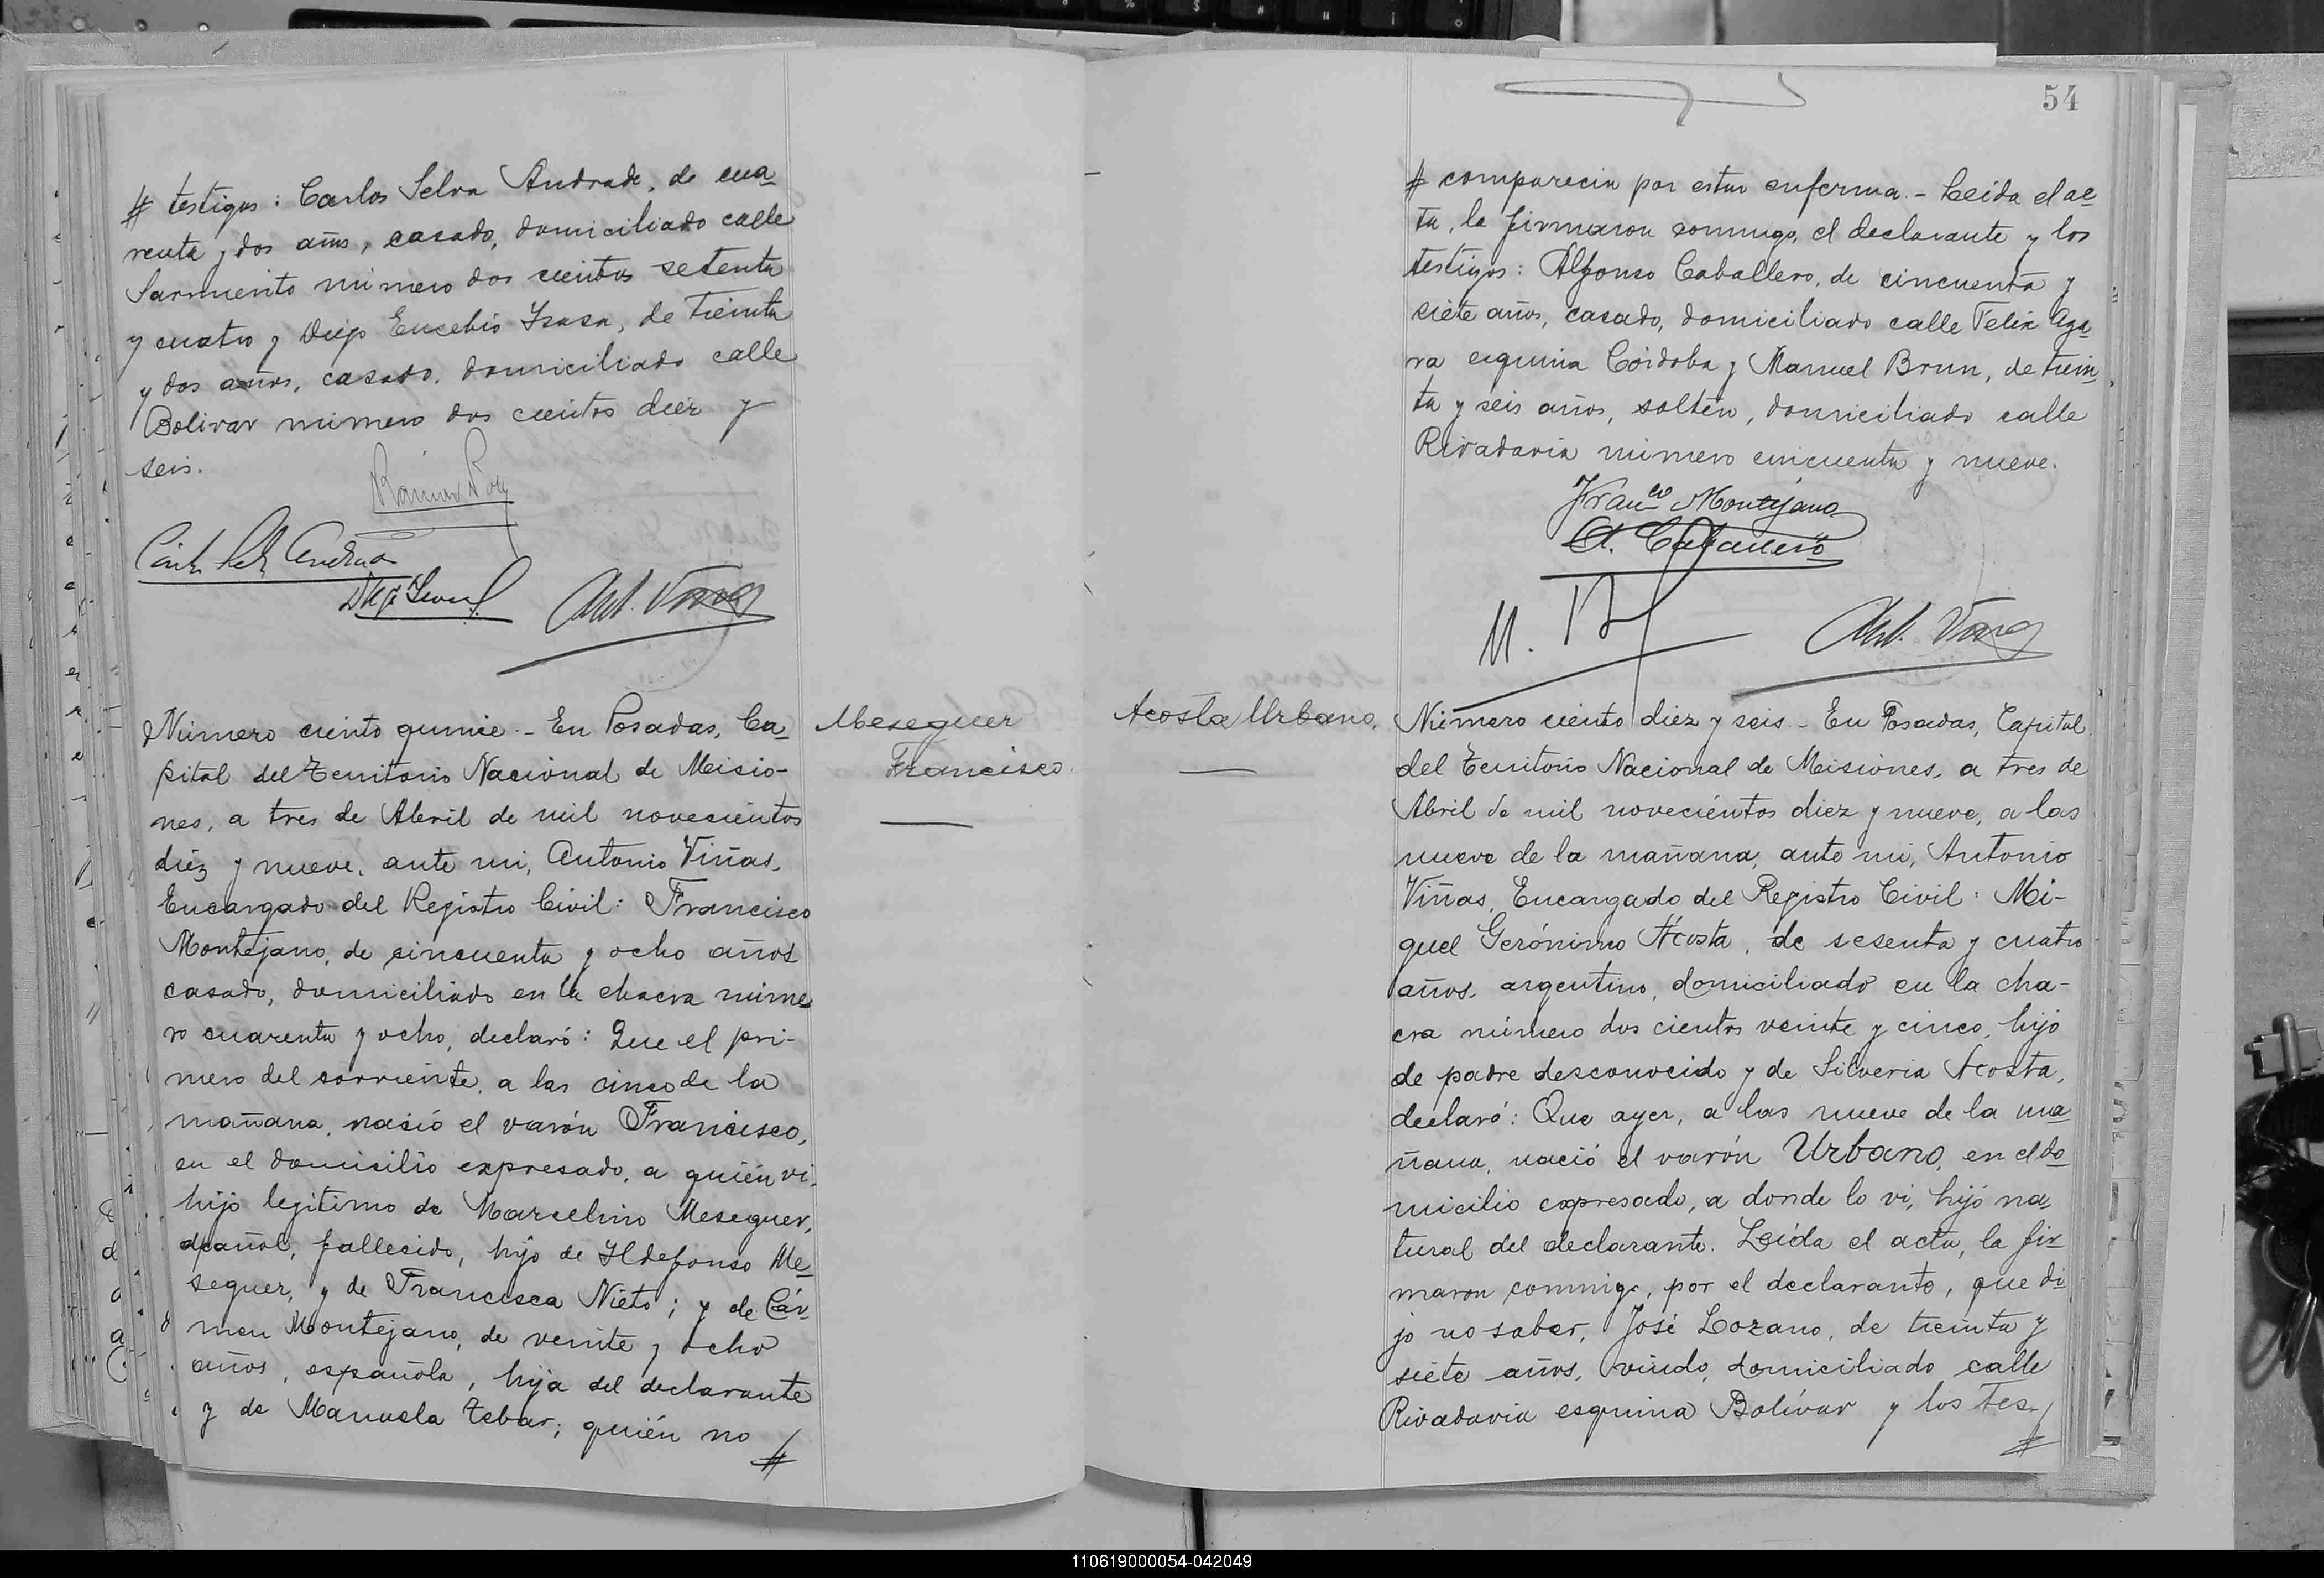 # testigos: Carlos Selva Andrade, de cua-
renta y dos años, casado, domiciliado calle
Sarmiento número dos cientos setenta
y cuatro y Diego Eucebio Isasa, de treinta
y dos años, casado, domiciliado calle
Bolivar número dos cientos diez y
seis.
Número ciento quince.- En Posadas, Ca-
pital del Territorio Nacional de Misio-
nes, a tres de Abril de mil novecientos
diez y nueve, ante mi, Antonio Viñas,
Encargado del Registro Civil: Francisco
Montejano, de cincuenta y ocho años
casado, domiciliado en la chacra núme
ro cuarenta y ocho, declaró: Que el pri-
mero del corriente, a las cinco de la
mañana, nació el varón Francisco,
en el domicilio expresado, a quién vi.
hijo legitimo de Marcelino Meseguer,
español, fallecido, hijo de Ildefonso Me-
seguer, y de Francisca Nieto; y de Cár-
men Montejano, de veinte y ocho
años, española, hija del declarante
y de Manuela Tebar; quién no
#
Meseguer
Francisco.
54
# comparecia por estar enferma.- Leida el ac-
ta, la firmaron conmigo, el declarante y los
testigos: Alfonso Caballero, de cincuenta y
siete años, casado, domiciliado calle Felix Aza-
ra esquina Córdoba y Manuel Brun, de trein-
ta y seis años, soltero, domiciliado calle
Rivadavia número cincuenta y nueve.
Franco Montejano
A. Caballero
M.
Ant. Viñas
Acosta Urbano.
Número ciento diez y seis.- En Posadas, Capital
del Territorio Nacional de Misiones, a tres de
Abril de mil novecientos diez y nueve, a las
nueve de la mañana, ante mi, Antonio
Viñas, Encargado del Registro Civil: Mi-
guel Gerónimo Acosta, de sesenta y cuatro
años, argentino, domiciliado en la cha-
cra número dos cientos veinte y cinco, hijo
de padre desconocido y de Silveria Acosta,
declaró: Que ayer, a las nueve de la ma-
ñana, nació el varón Urbano, en el do-
micilio expresado, a donde lo vi, hijo na-
tural del declarante. Leída el acta, la fir-
maron conmigo, por el declarante, que di-
jo no saber, José Lozano, de treinta y
siete años, viudo, domiciliado calle
Rivadavia esquina Bolívar y los tes-
#
110619000054-042049